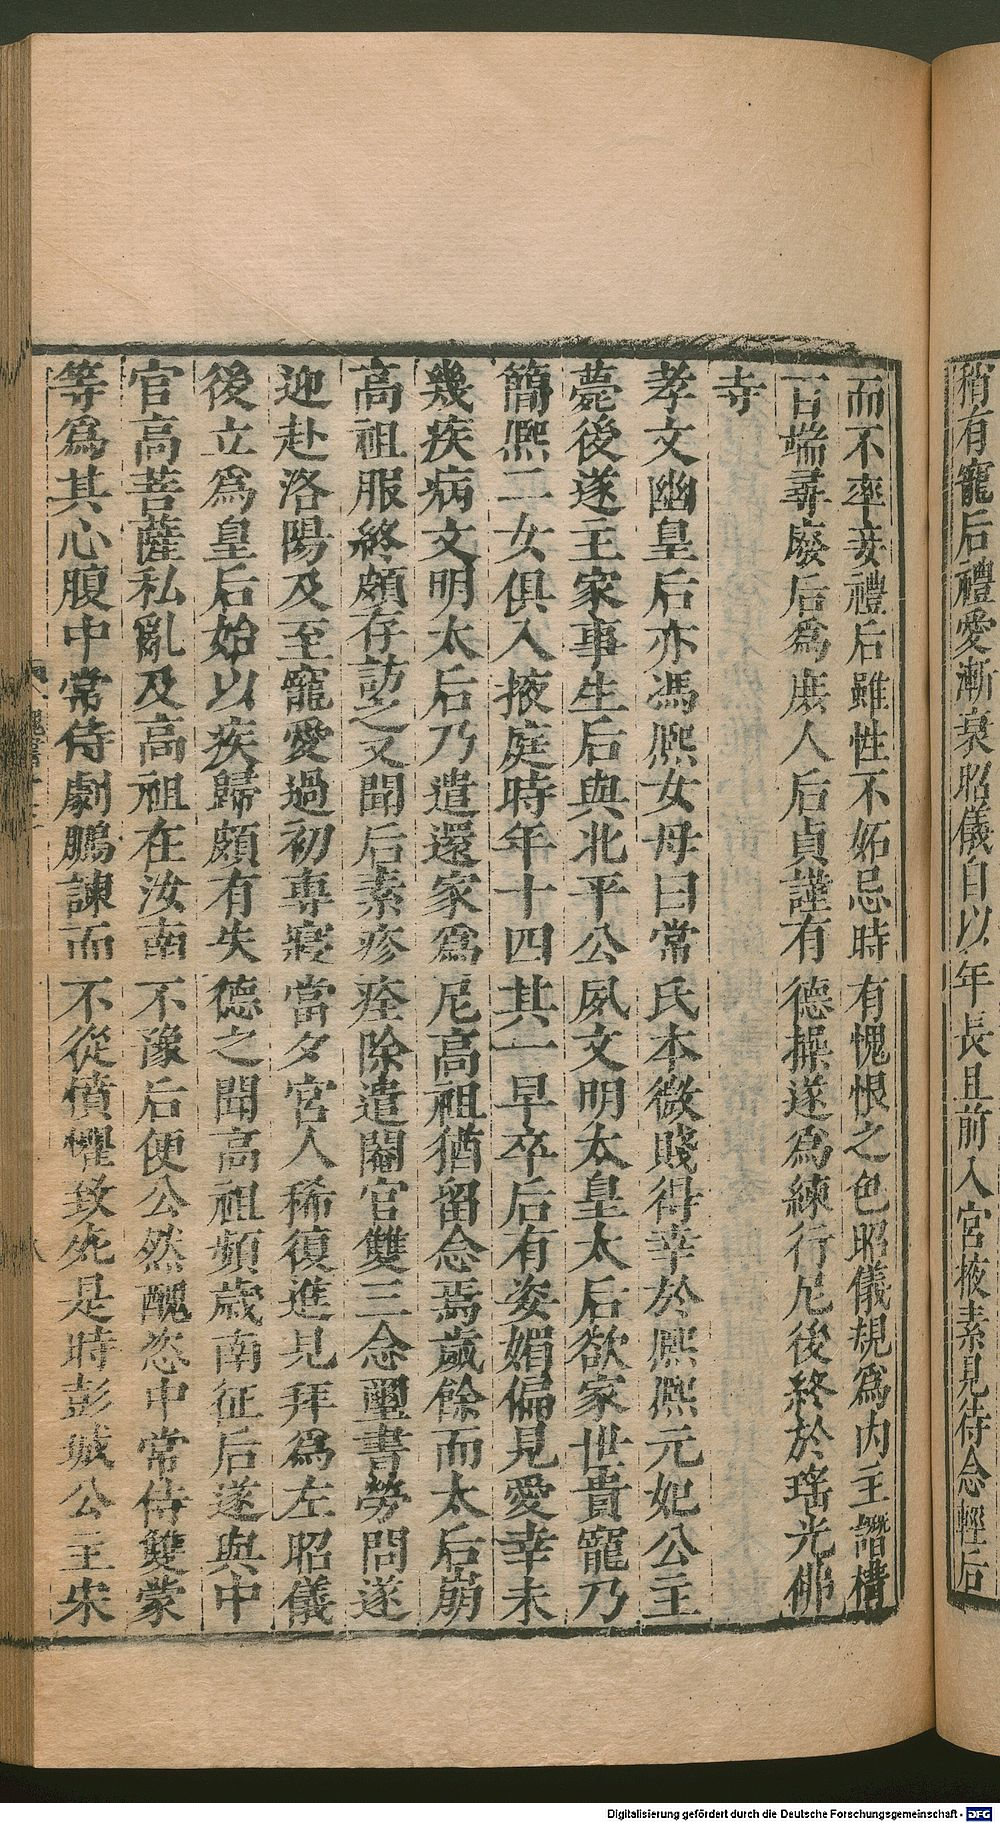 稍有寵后禮愛漸衰昭儀自以年長且前入宮掖素見待念輕后
而不率妾禮后雖性不妬忌時有愧恨之色昭儀規爲内主譖構
百端尋廢后爲庶人后貞謹有德操遂爲練行尼後終於瑤光佛
寺
孝文幽皇后亦馮熙女母曰常氏本微賤得幸於熙熙元妃公主
薨後遂主家事生后與北平公夙文明太皇太后欲家世貴寵乃
簡熙二女俱入掖庭時年十四其一早卒后有姿媚偏見愛幸未
幾疾病文明太后乃遣還家爲尼高祖猶留念焉歲餘而太后崩
高祖服終頗存訪之又聞后素疹痊除遣閹官雙三念璽書勞問遂
迎赴洛陽及至寵愛過初專寢當夕宮人稀復進見拜爲左昭儀
後立爲皇后始以疾歸頗有失德之聞高祖頻歲南征后遂與中
官高菩薩私亂及高祖在汝南不豫后便公然醜恣中常侍雙蒙
等爲其心腹中常侍劇鵬諫而不從憤懼致死是時彭城公主宋
Digitalisierung gefördert durch die Deutsche Forschungsgemeinschaft - DFG